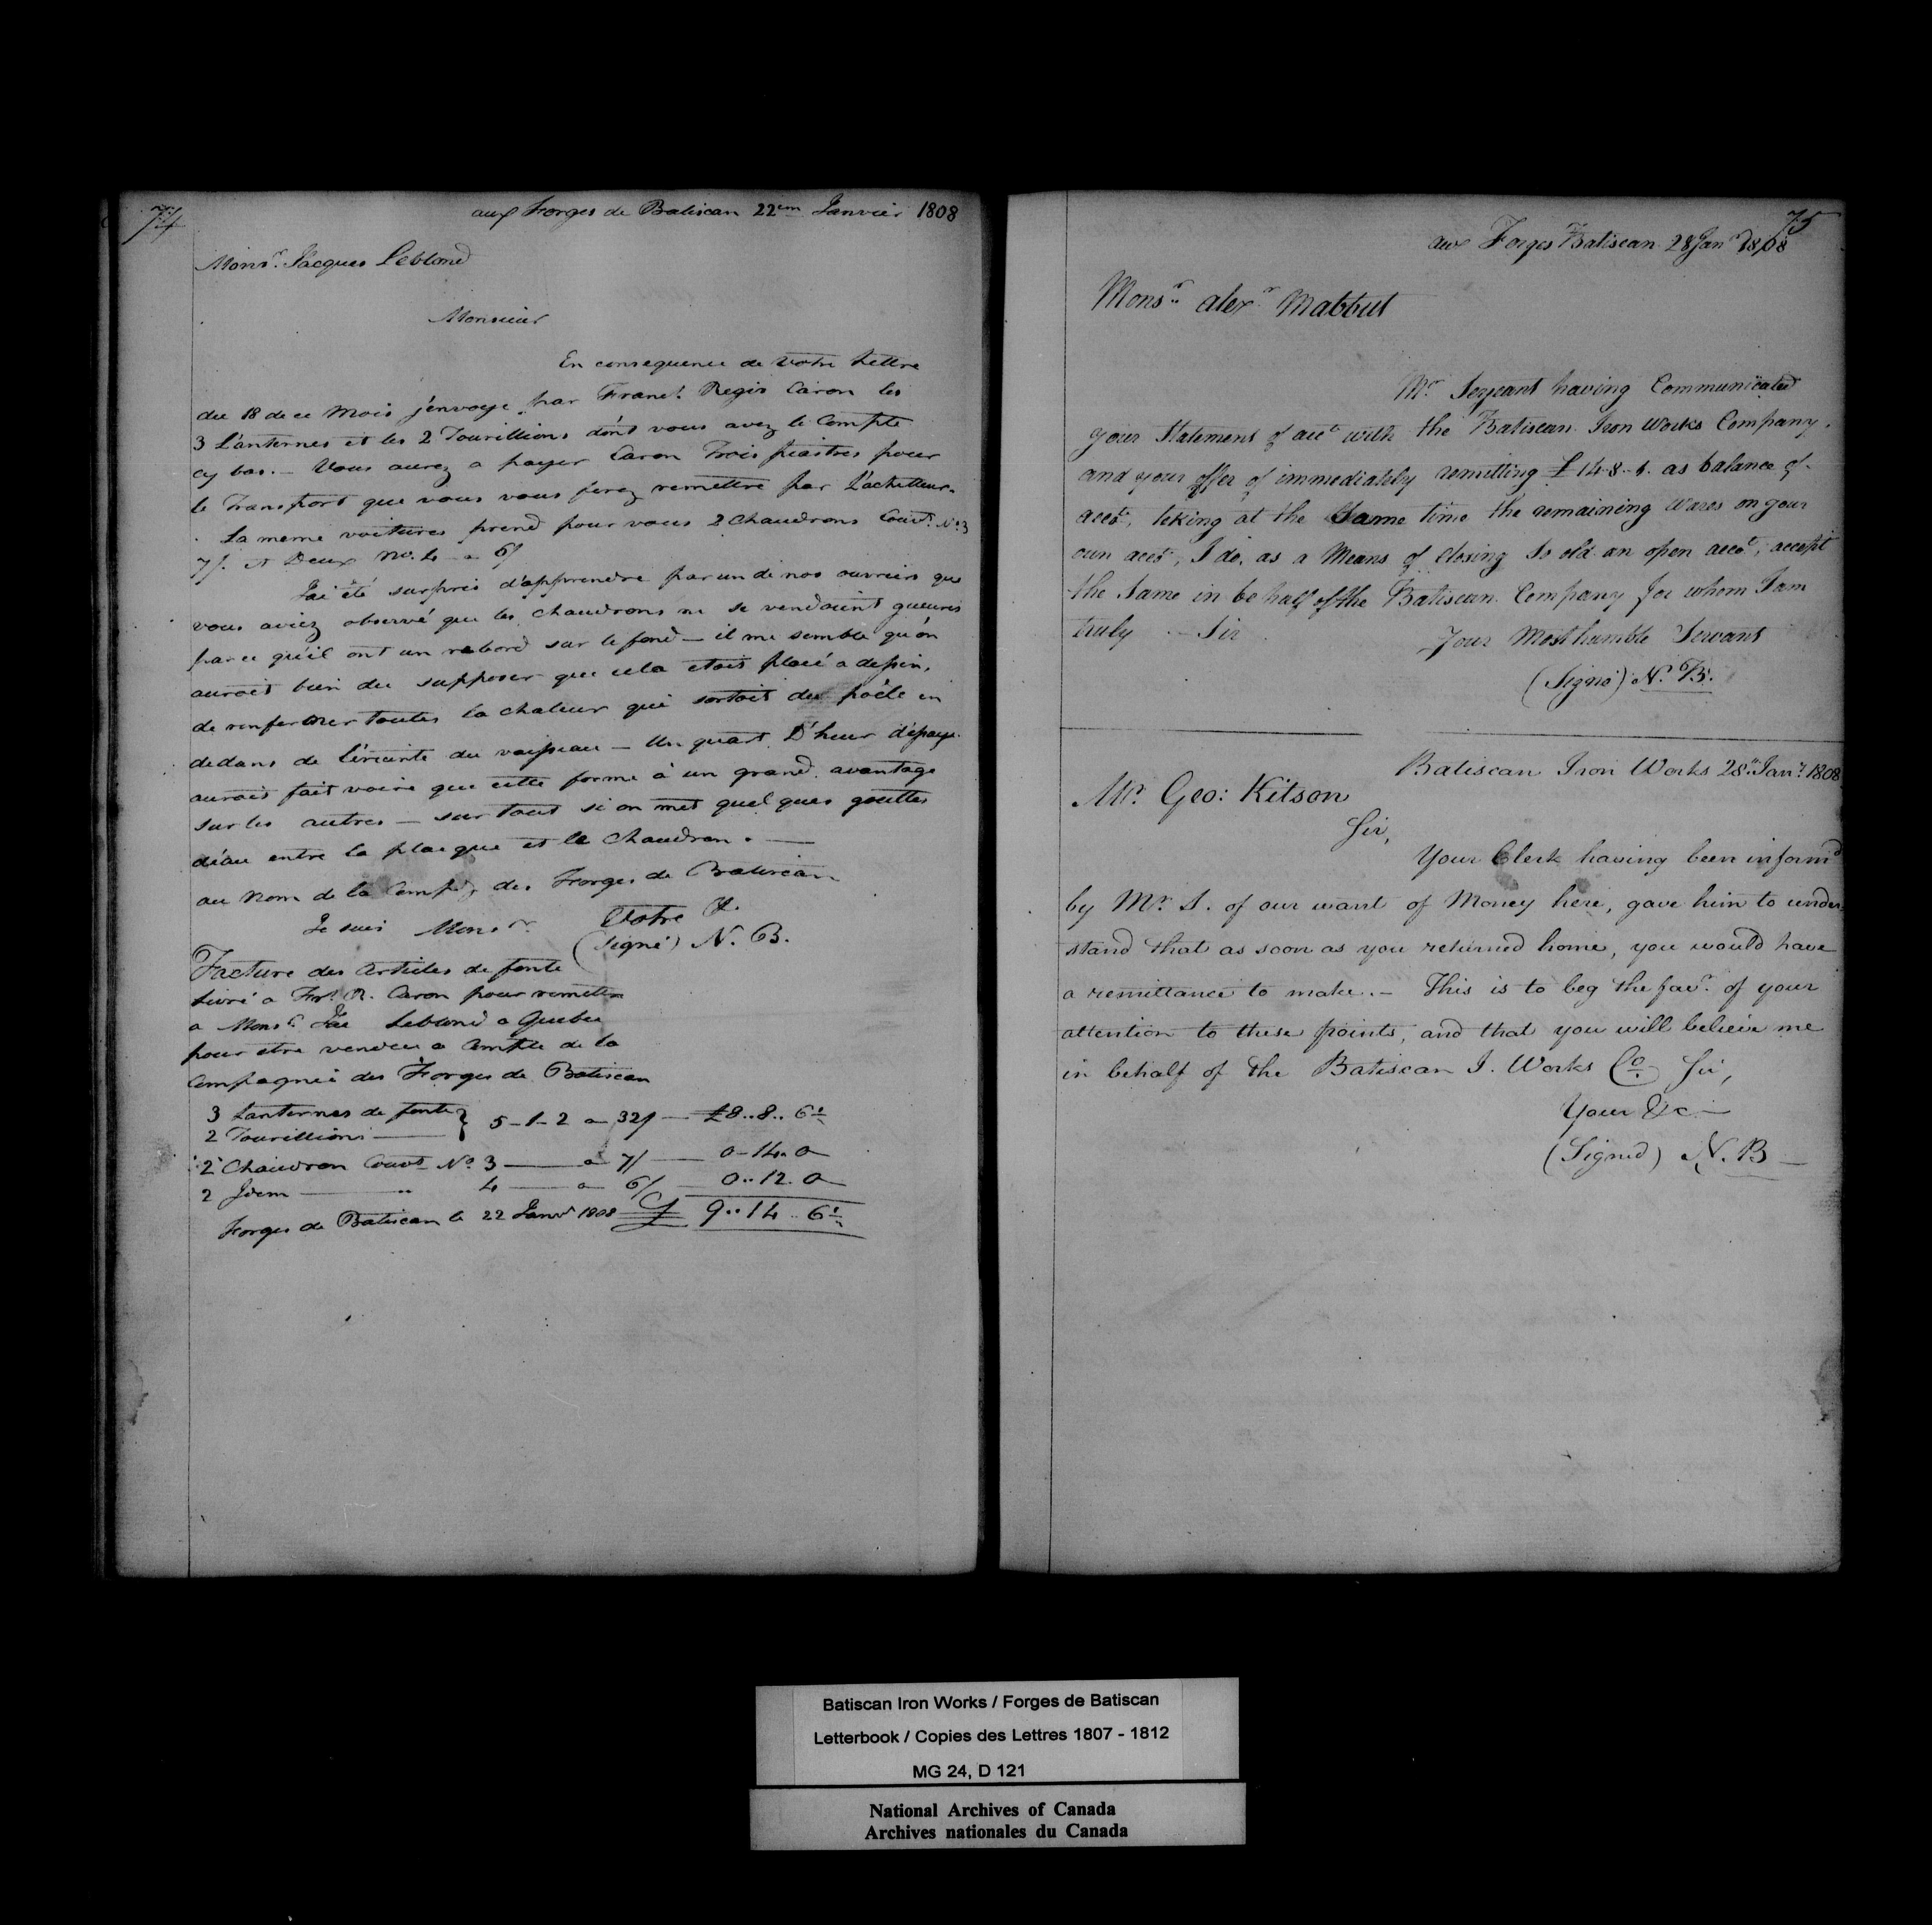 74
aux Forges de Batiscan 22em Janvier 1808
Monsr. Jacques Leblond
Monsieur
En consequence de Votre Lettre
du 18 de ce Mois j'envoye par Francs. Regis Caron les
3 Lanternes et les 2 Tourillions dont vous avez le Compte
cy bas. — Vous aurez a payer Caron Trois piastres pour
le Transport que vous vous ferez remettre par L'achetteur.
La meme voitures prend pour vous 2 Chaudrons Couvts. No. 3
7/. et Deux No. 4 a 6/
J'ai été surpris d'apprendre par un de nos ouvriers que
vous aviez observé que les chaudrons ne se vendoient gueures
parce qu'il ont un rebord sur le fond — il me semble qu'on
auroit bien du supposer que cela etoit placé a dessin,
de renfermer toutes la chaleur qui sortoit du poële en
dedans de l'enceinte du vaisseau — Un quart D'heur d'essaye
auroit fait voire que cette forme à un grand avantage
sur les autres — sur tout si on met quelques gouttes
d'eau entre la plaque et le Chaudron. —
au Nom de la Compe. des Forges de Batiscan
Je suis Monsr. Votre &.
(signé) N. B.
Facture des Articles de fonte
livré a Frs. R. Caron pour remettre
a Monsr. Jac Leblond a Quebec
pour etre vendu a Compte de la
Compagnie des Forges de Batiscan
3 Lanternes de fonte } 5-1-2 a 32/ — £8..8..6½
2 Tourillions —
2 Chaudron Couvts No. 3 — a 7/ — 0-14.0
2 Idem — " 4 — a 6/ — 0..12.0
Forges de Batiscan le 22 Janvr 1808 £ 9..14..6½
75
aux Forges Batiscan 28 Janr 1808
Monsr. alexr. Mabbut
Mr. Serjeant having Communicated
your Statement of acct. with the Batiscan Iron Works Company,
and your offer of immediately remitting £14-8-1. as balance of
acct., teking at the Same time the remaining Wares on your
own acct., I do, as a Means of Closing So old an open acct., accept
the Same in behalf of the Batiscan Company for whom I am
truly — Sir
Your Most humble Servant
(Signé) N. B.
Batiscan Iron Works 28th. Jany. 1808
Mr. Geo: Kitson
Sir,
Your Clerk having been informd
by Mr. S. of our want of Money here, gave him to under-
stand that as soon as you returned home, you would have
a remittance to make. — This is to beg the favr. of your
attention to these points, and that you will believe me
in behalf of the Batiscan I. Works Co. Sir,
Your &c. —
(Signed) N. B —
Batiscan Iron Works / Forges de Batiscan
Letterbook / Copies des Lettres 1807 - 1812
MG 24, D 121
National Archives of Canada
Archives nationales du Canada